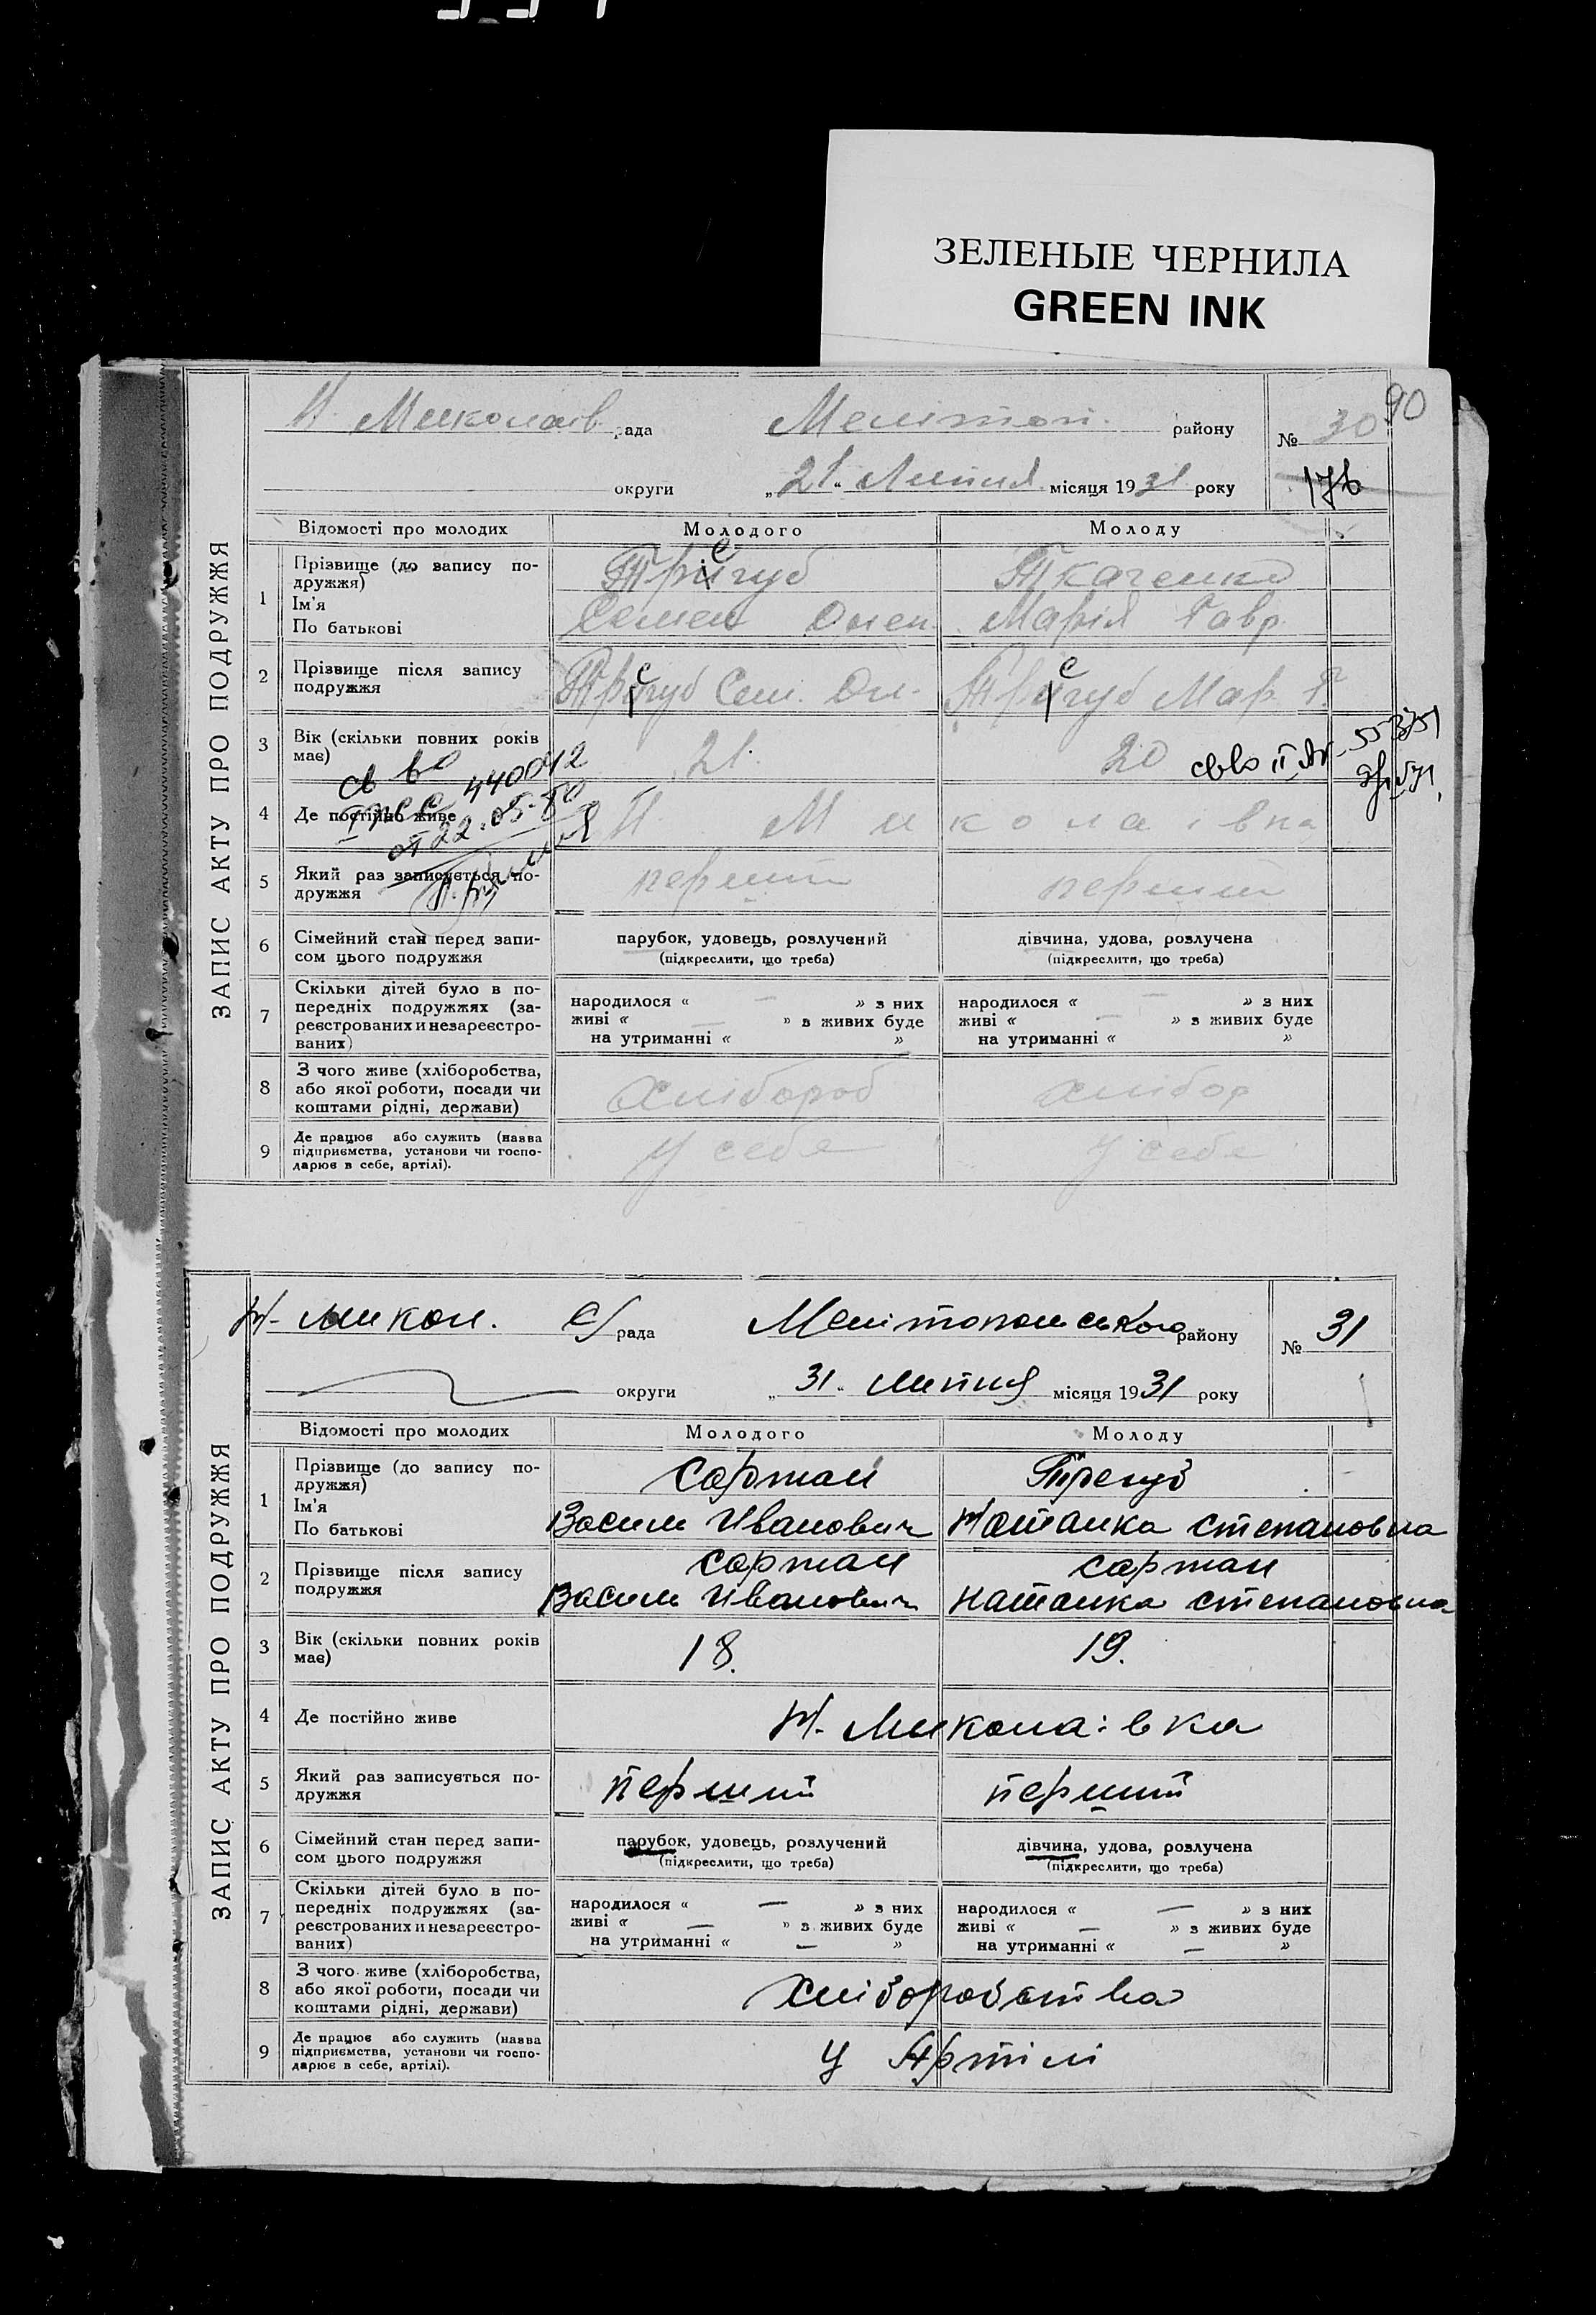 ЗЕЛЕНЫЕ ЧЕРНИЛА
GREEN INK
90
Н. Миколаїв. рада Меліتоп. району № 30
округи „21“ Липня місяця 1931 року
176
ЗАПИС АКТУ ПРО ПОДРУЖЖЯ
Відомості про молодих Молодого Молоду
1 Прізвище (до запису по-
дружжя)
Ім'я
По батькові
Тригуб Ткаченко
е
Семен Омел. Марія Гавр.
2 Прізвище після запису
подружжя
Тригуб Сем. Ом. Тригуб Мар. Г.
е е
3 Вік (скільки повних років
має)
21. 20
св во 440042
от 22.05.80
св во II
4 Де постійно живе Н. Миколаівка
5 Який раз записується по-
дружжя
перший перший
6 Сімейний стан перед запи-
сом цього подружжя
парубок, удовець, розлучений дівчина, удова, розлучена
(підкреслити, що треба) (підкреслити, що треба)
7 Скільки дітей було в по-
передніх подружжях (за-
реєстрованих и незареєстро-
ваних)
народилося « — » з них народилося « — » з них
живі « — » з живих буде живі « — » з живих буде
на утриманні « » на утриманні « »
8 З чого живе (хліборобства,
або якої роботи, посади чи
коштами рідні, держави)
хлібороб хлібор
9 Де працює або служить (назва
підприємства, установи чи госпо-
дарює в себе, артілі).
у себе у себе
Н- микол. с/рада Мелітопольського району № 31
округи „31“ липня місяця 1931 року
ЗАПИС АКТУ ПРО ПОДРУЖЖЯ
Відомості про молодих Молодого Молоду
1 Прізвище (до запису по-
дружжя)
Ім'я
По батькові
Сартан Трегуб
Василь Иванович Наталка степановна
2 Прізвище після запису
подружжя
сартан сартан
Василь Иванович Наталка степановна
3 Вік (скільки повних років
має)
18. 19.
4 Де постійно живе Н. Микола:вка
5 Який раз записується по-
дружжя
перший перший
6 Сімейний стан перед запи-
сом цього подружжя
парубок, удовець, розлучений дівчина, удова, розлучена
(підкреслити, що треба) (підкреслити, що треба)
7 Скільки дітей було в по-
передніх подружжях (за-
реєстрованих и незареєстро-
ваних)
народилося « — » з них народилося « — » з них
живі « — » з живих буде живі « — » з живих буде
на утриманні « — » на утриманні « — »
8 З чого живе (хліборобства,
або якої роботи, посади чи
коштами рідні, держави)
хліборобства
9 Де працює або служить (назва
підприємства, установи чи госпо-
дарює в себе, артілі).
у Артілі